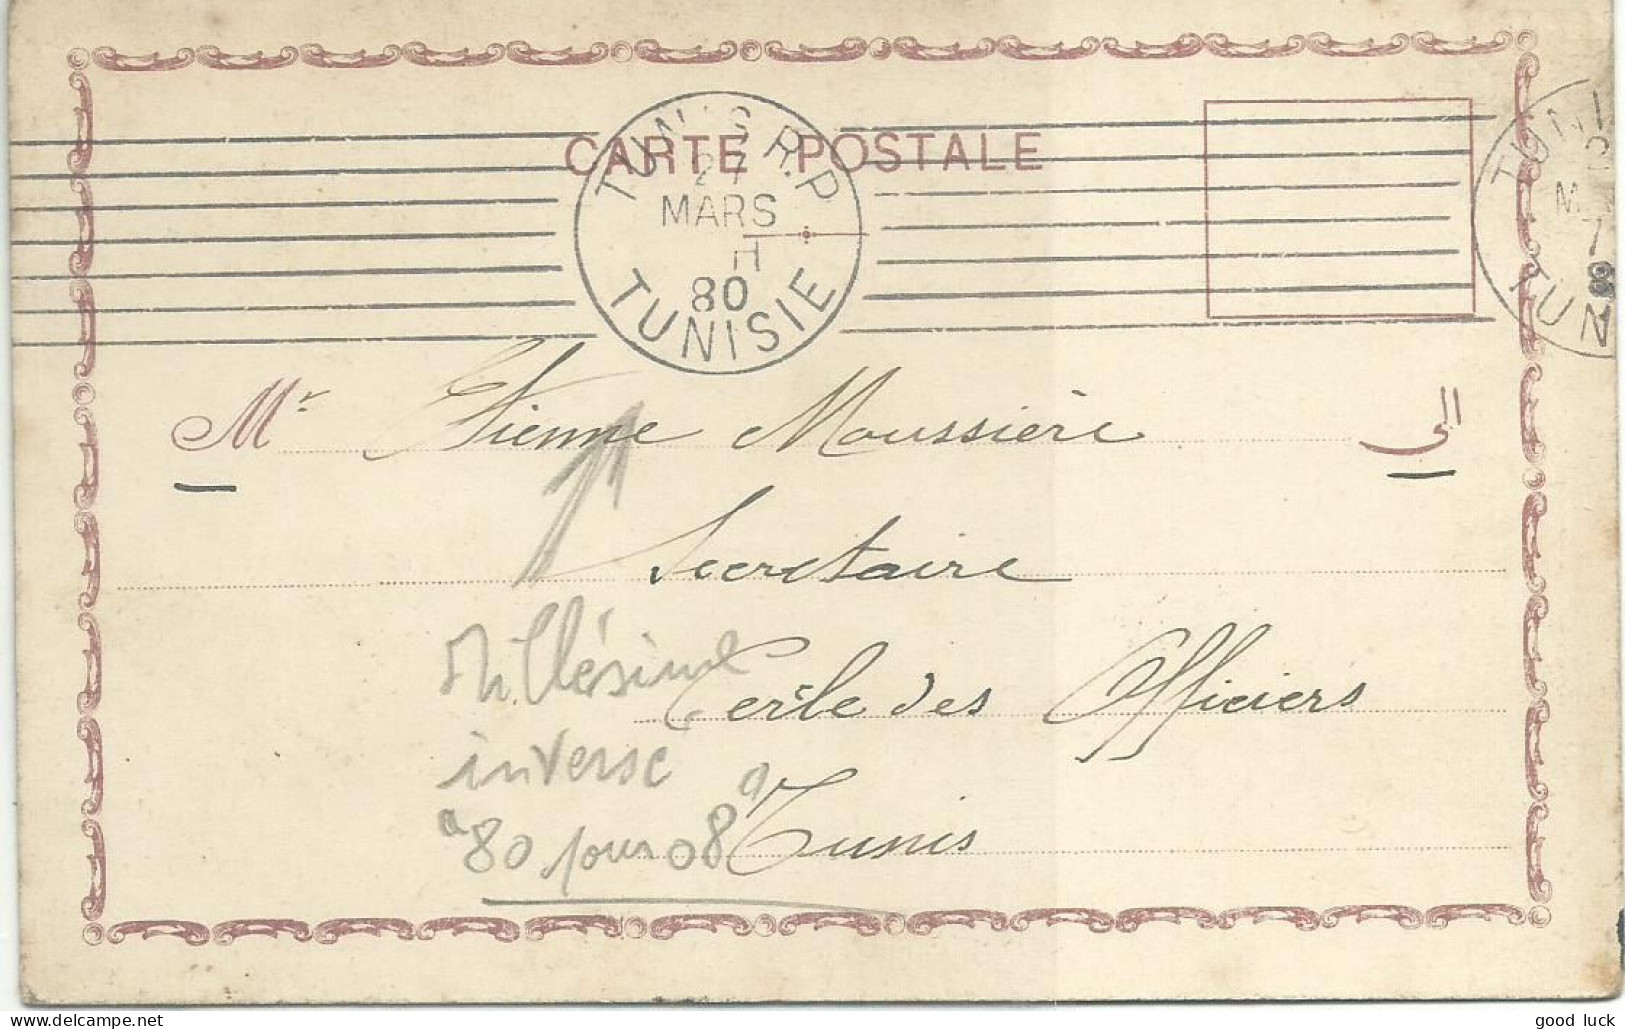 CARTE POSTALE
TUNIS R.P
27
MARS
H
80
TUNISIE
TUNI
80
TUN
Mr Etienne Moussière
الى
Secretaire
Cercle des Officiers
Tunis
Millésime
inverse
"80 pour 08"
good luck